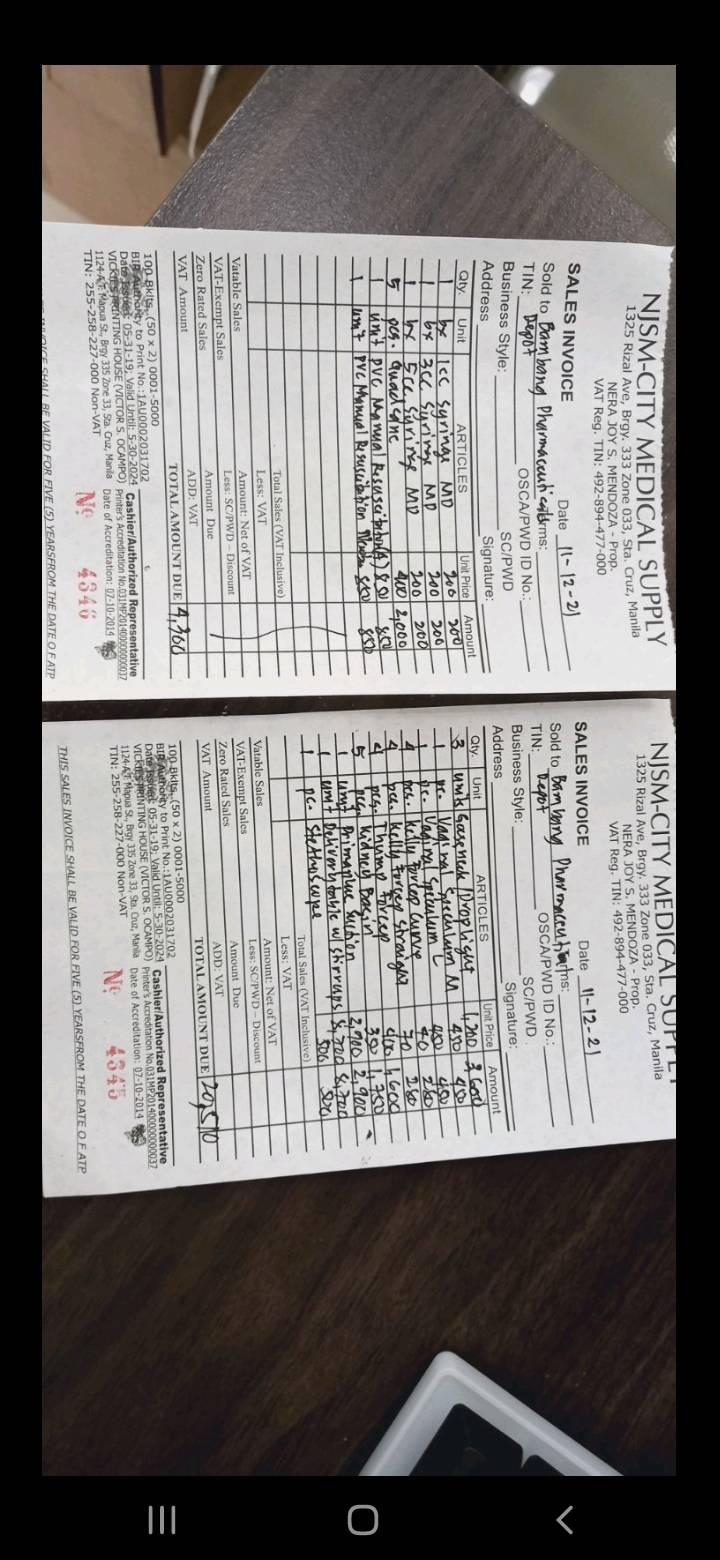 NJSM-CITY MEDICAL SUPPLY
1325 Rizal Ave, Brgy. 333 Zone 033, Sta. Cruz, Manila
NERA JOY S. MENDOZA - Prop.
VAT Reg. TIN: 492-894-477-000
SALES INVOICE Date 11-12-21
Sold to Bambang Pharmaceuticals
TIN: Depot OSCA/PWD ID No.:
Business Style: SC/PWD
Address Signature:
Qty. Unit ARTICLES Unit Price Amount
1 bx 1cc Syringe MD 200 200
1 bx 3cc Syringe MD 200 200
1 bx 5cc Syringe MD 200 200
5 pcs. Quad Cane 400 2,000
1 unit PVC Manual Resuscitation(A) 850 850
1 unit PVC Manual Resuscitation 850 850
Total Sales (VAT Inclusive)
Less: VAT
Vatable Sales Amount: Net of VAT
VAT-Exempt Sales Less: SC/PWD – Discount
Zero Rated Sales Amount Due
VAT Amount ADD: VAT
TOTAL AMOUNT DUE 4,300
100 Bklts. (50 x 2) 0001-5000
BIR Authority to Print No.:1AU0002031702
Date Issued: 05-31-19; Valid Until: 5-30-2024 Cashier/Authorized Representative
VICKIES PRINTING HOUSE (VICTOR S. OCAMPO) Printer's Accreditation No.031MP201400000000037
1124-A F. Mapua St., Brgy 335 Zone 33, Sta. Cruz, Manila Date of Accreditation: 07-10-2014
TIN: 255-258-227-000 Non-VAT
Nº 4346
INVOICE SHALL BE VALID FOR FIVE (5) YEARSFROM THE DATE O F ATP
NJSM-CITY MEDICAL SUPPLY
1325 Rizal Ave, Brgy. 333 Zone 033, Sta. Cruz, Manila
NERA JOY S. MENDOZA - Prop.
VAT Reg. TIN: 492-894-477-000
SALES INVOICE Date 11-12-21
Sold to Bambang Pharmaceuticals
TIN: Depot OSCA/PWD ID No.:
Business Style: SC/PWD
Address Signature:
Qty. Unit ARTICLES Unit Price Amount
3 units Gaseneck /Droplight 1,200 3,600
1 pc. Vaginal Speculum M 450 450
1 pc. Vaginal Speculum L 450 450
4 pcs. Kelly Forcep Curve 70 280
4 pcs. Kelly Forcep Straight 70 280
4 pcs. Thump Forcep 400 1,600
5 pcs. Kidney Basin 350 1,750
1 unit Suction 2,900 2,900
1 unit Delivery table w/ stirrups 8,700 8,700
1 pc. Stethoscope 500 500
Total Sales (VAT Inclusive)
Less: VAT
Vatable Sales Amount: Net of VAT
VAT-Exempt Sales Less: SC/PWD – Discount
Zero Rated Sales Amount Due
VAT Amount ADD: VAT
TOTAL AMOUNT DUE 20,510
100 Bklts. (50 x 2) 0001-5000
BIR Authority to Print No.:1AU0002031702
Date Issued: 05-31-19; Valid Until: 5-30-2024 Cashier/Authorized Representative
VICKIES PRINTING HOUSE (VICTOR S. OCAMPO) Printer's Accreditation No.031MP201400000000037
1124-A F. Mapua St., Brgy 335 Zone 33, Sta. Cruz, Manila Date of Accreditation: 07-10-2014
TIN: 255-258-227-000 Non-VAT
Nº 4345
THIS SALES INVOICE SHALL BE VALID FOR FIVE (5) YEARSFROM THE DATE O F ATP